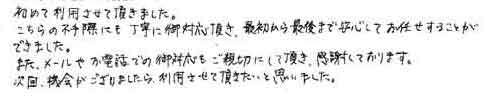 初めて利用させて頂きました。
こちらの不手際にも丁寧に御対応頂き、最初から最後まで安心してお任せすることが
できました。
また、メールやお電話での御対応もご親切にして頂き、感謝しております。
次回、機会がございましたら、利用させて頂きたいと思いました。